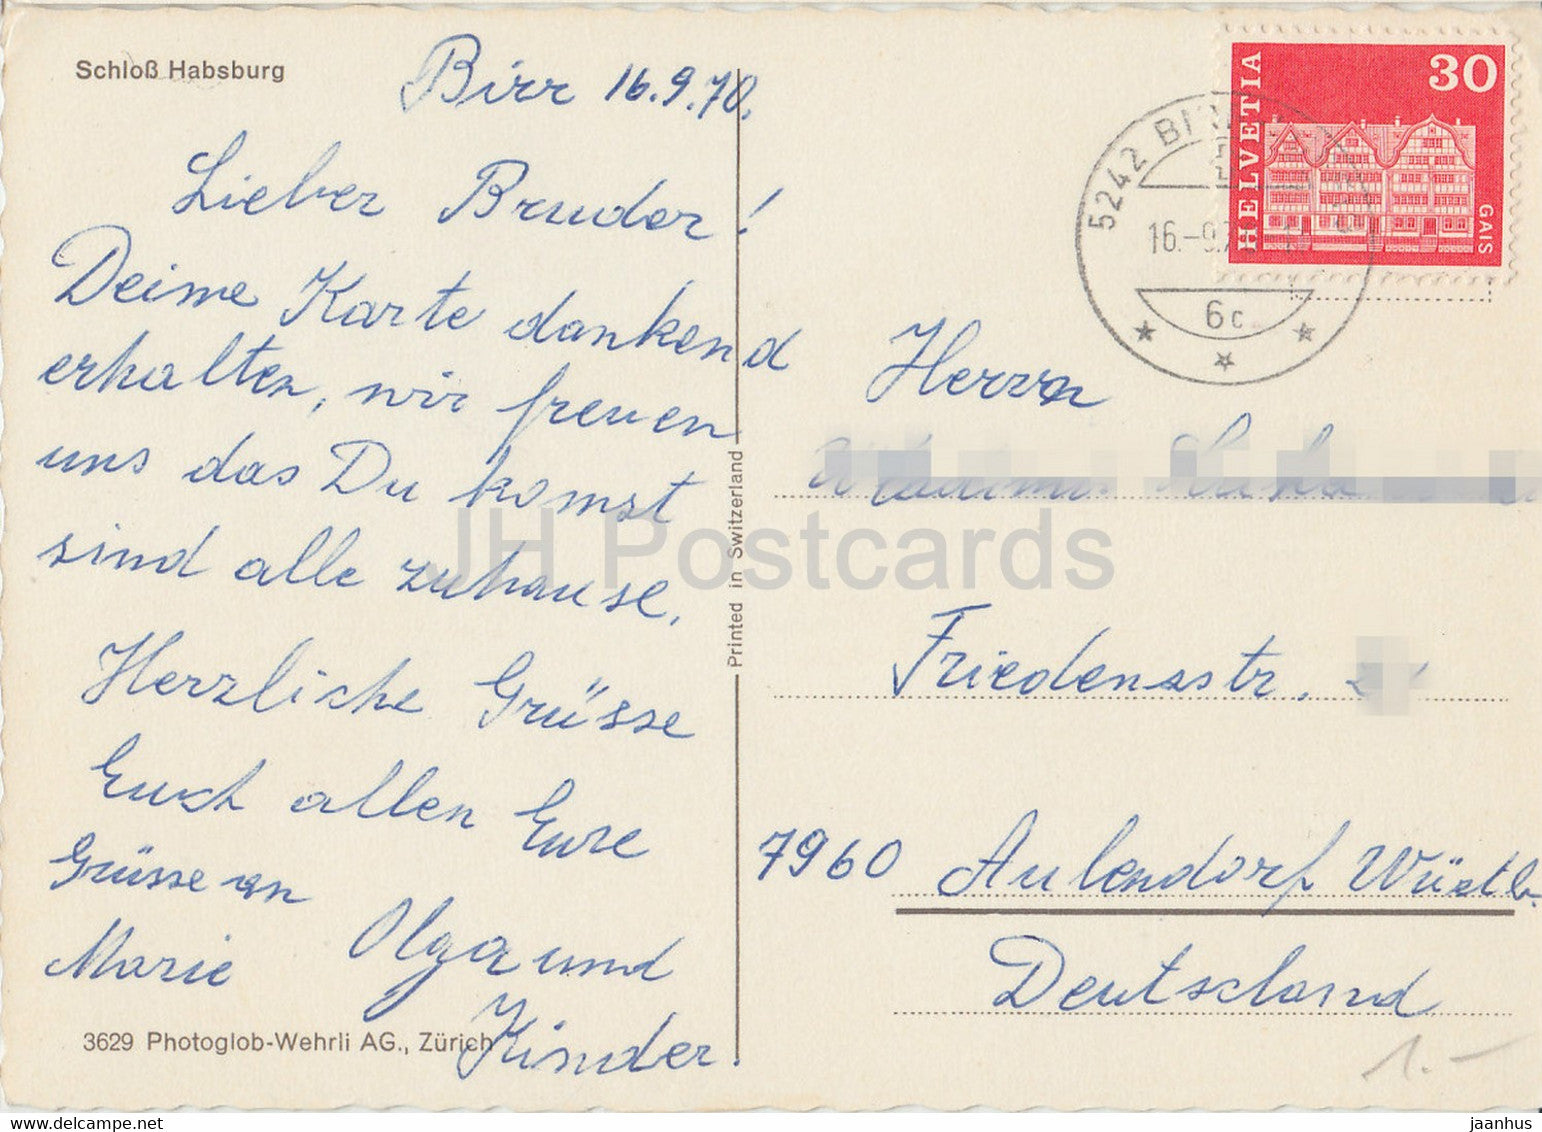 Schloß Habsburg
Birr 16.9.70.
Lieber Bruder!
Deine Karte dankend
erhalten, wir freuen
uns das Du komst
sind alle zuhause.
Herzliche Grüsse
Euch allen Eure
Grüsse an
Marie Olga und
Kinder.
3629 Photoglob-Wehrli AG., Zürich
Printed in Switzerland
HELVETIA
30
GAIS
5242
16.-9.7
6c
Herrn
Friedensstr.
7960 Aulendorf Württb.
Deutschland
1.-
JH Postcards
jaanhus @ delcampe